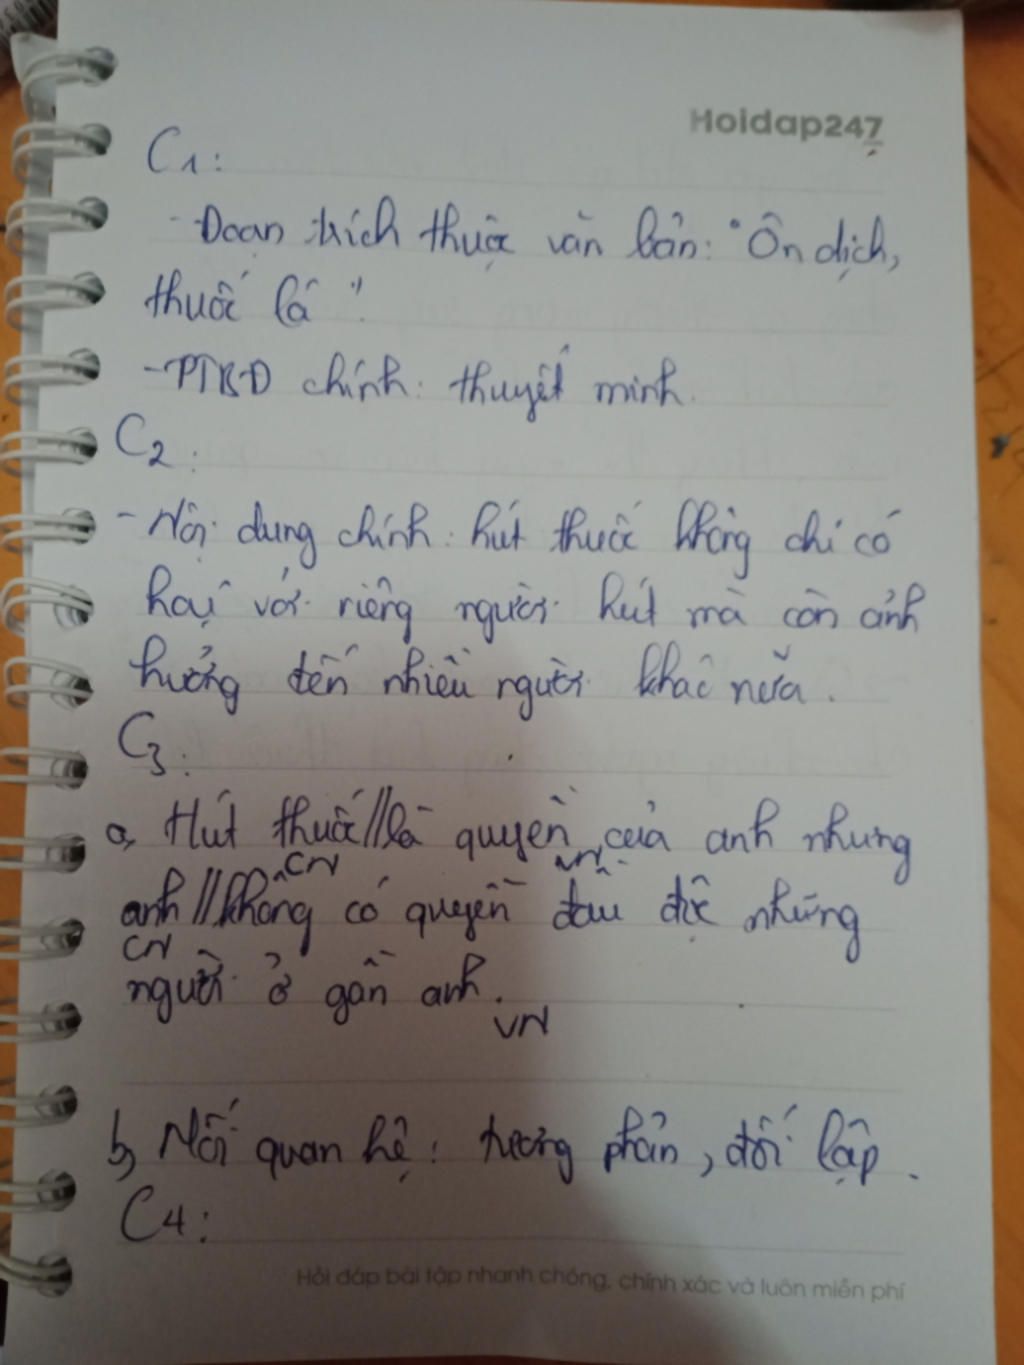 Hoidap247
C1:
- Đoạn trích thuộc văn bản: "Ôn dịch,
thuốc lá"
- PTBĐ chính: thuyết minh.
C2:
- Nội dung chính: hút thuốc không chỉ có
hại với riêng người hút mà còn ảnh
hưởng đến nhiều người khác nữa.
C3:
a, Hút thuốc//là quyền của anh nhưng
CN VN
anh//không có quyền đầu độc những
CN
người ở gần anh.
VN
b, Nối quan hệ: tương phản, đối lập.
C4:
Hỏi đáp bài tập nhanh chóng, chính xác và luôn miễn phí